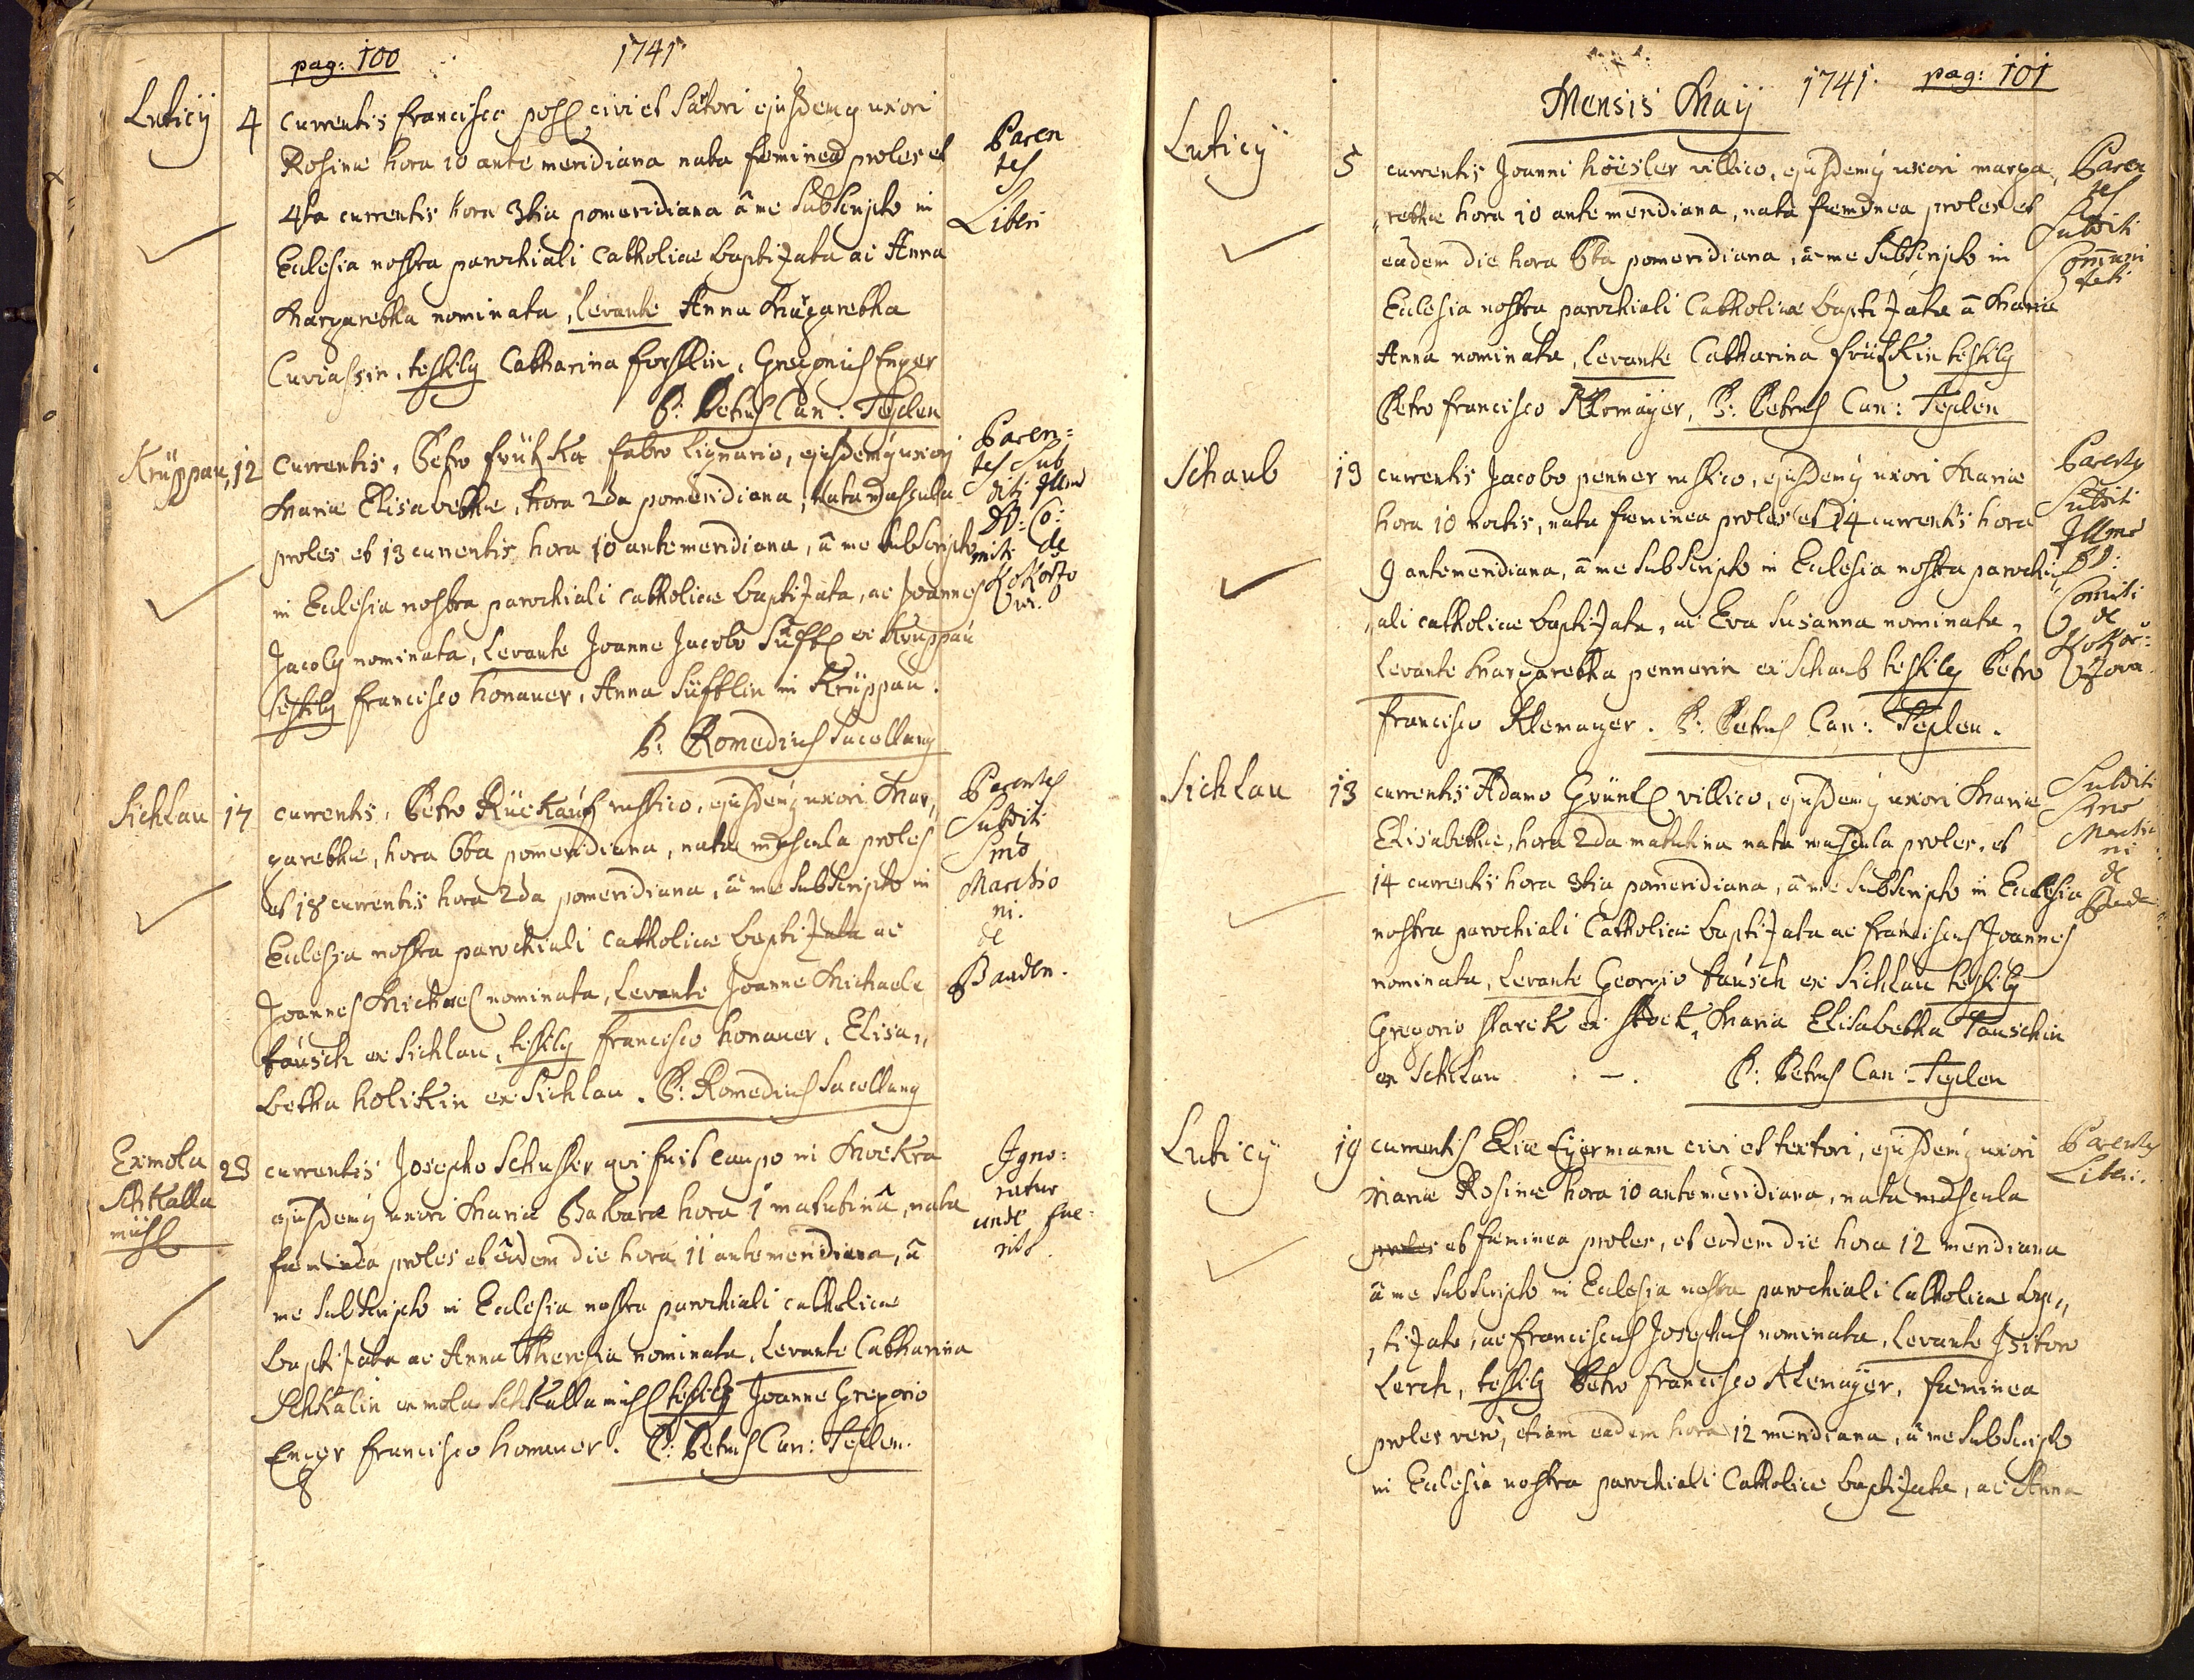 pag: 100
1741
Luticÿ 4 currentis Francisco civi et Sartori ejusdemq uxori
Rosinæ hora 10 ante meridiana nata fæminea proles et
4ta currentis hora 3tia pomeridiana â me Subscripto in
Ecclesia nostra parochiali Catholice baptizata ac Anna
Margaretha nominata, levante Anna Margaretha
testibq Catharina Gregorius Enger
P: Petrus Can: Teplen
Paren
tes
Liberi
Krüppau, 12 currentis, Petro fabro lignario, ejusdemq uxori
Mariæ Elisabethæ, hora 2da pomeridiana, nata mascula
proles et 13 currentis hora 10 antemeridiana, â me Subscripto
in Ecclesia nostra parochiali catholice baptizata, ac Joannes
Jacobq nominata, levante Joanne Jacobo ex Kruppau
testibq Francisco honauer, Anna in Krüppau.
P: Romedius Sacellanq
Paren=
tes Sub
diti Illmo
DD: Co:
miti de
Kokorzo
wa.
Sichlau 17 currentis, Petro Rückauf rustico, ejusdemq uxori Mar,,
garethæ, hora 6ta pomeridiana, nata mascula proles
et 18 currentis hora 2da pomeridiana, â me Subscripto in
Ecclesia nostra parochiali catholice baptizata ac
Joannes Michael nominata, levante Joanne Michaele
täusch ex Sichlau, testibq Francisco honauer, Elisa,,
betha holikin ex Sichlau. P: Romedius Sacellanq
Parentes
Subditi
Smo
Marchio
ni.
de
Baaden.
Ex mola
Schkalla
mühl
23 currentis Josepho Schuster qui fuit caupo in Mockra
ejusdemq uxori Mariæ Barbaræ hora 1 matutinâ, nata
fæminea proles et eâdem die hora 11 antemeridiana, â
me Subscripto in Ecclesia nostra parochiali catholice
baptizata ac Anna Theresia nominata, levante Catharina
Schkalin ex mola Schkallamühl testibq Joanne Gregorio
Enger Francisco honauer. P: Petrus Can: Teplen.
Igno=
ratur
unde fue=
rint.
1741 pag: 101
Mensis Maÿ
Luticÿ 5 currentis Joanni höësler villico, ejusdemq uxori marga,,
,,rethæ hora 10 ante meridiana, nata fæminea proles et
eadem die hora 6ta pomeridiana, â me Subscripto in
Ecclesia nostra parochiali Catholice baptizata â Maria
Anna nominata, levante Catharina testibq
Petro Francisco Klemaÿer, P: Petrus Can: Teplen
Paren
tes
Subditi
Comuni
tati
Schaub 13 currentis Jacobo penner rustico, ejusdemq uxori Mariæ
hora 10 noctis, nata fæminea proles et 14 currentis hora
9 antemeridiana, â me Subscripto in Ecclesia nostra parochi,,
,,ali catholice baptizata, ac Eva Susanna nominata,
levante Margaretha pennerin ex Schaub testibq Petro
Francisco Klemayer. P: Petrus Can: Teplen.
Parentq
Subditi
Illmo
DD:
Comiti
de
Kokor=
zowa.
Sichlau 13 currentis Adamo Grünl villico, ejusdemq uxori Mariæ
Elisabethæ, hora 2da matutina nata mascula proles, et
14 currentis hora 3tia pomeridiana, â me Subscripto in Ecclesia
nostra parochiali Catholice baptizata ac Franciscus Joannes
nominata, levante Georgio täusch ex Sichlau testibq
Gregorio Starck ex Stock, Maria Elisabetha Tauschin
ex Sichlau P: Petrus Can: Teplen
Subditi
Smo
Marchio
ni
de
Baade
Luticÿ 19 currentis Eliæ Eÿermann civi et textori, ejusdemq uxori
Mariæ Rosinæ hora 10 antemeridiana, nata mascula
proles et fæminea proles, et eadem die hora 12 meridiana
â me Subscripto in Ecclesia nostra parochiali Catholice bap,,
,,tizata, ac Franciscus Josephus nominata, levante Isitoro
Lerch, testibq Petro Francisco Klemaÿer, fæminea
proles verò, etiam eadem hora 12 meridiana, â me Subscripto
in Ecclesia nostra parochiali Catholice baptizata, ac Anna
Parentq
Liberi.